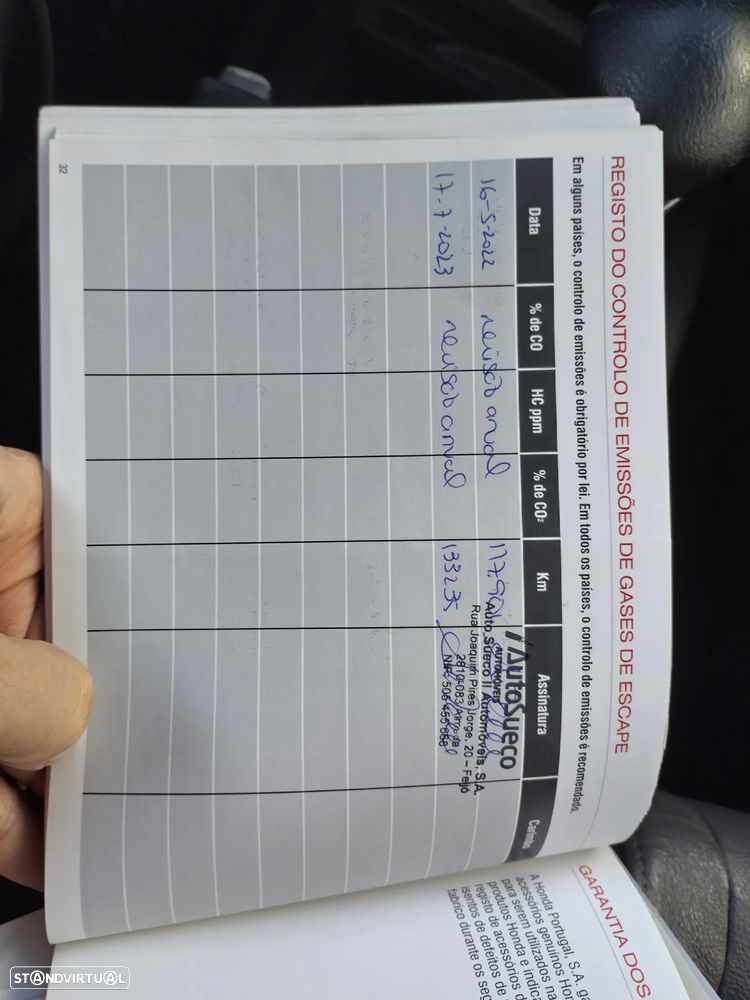 REGISTO DO CONTROLO DE EMISSÕES DE GASES DE ESCAPE
Em alguns países, o controlo de emissões é obrigatório por lei. Em todos os países, o controlo de emissões é recomendado.
Data % de CO HC ppm % de CO2 Km Assinatura Carimbo
16-5-2022 revisão anual 117.901
17-7-2023 revisão anual 133235
AutoSueco
AUTOMÓVEIS
Auto Sueco II Automóveis, S.A.
Rua Joaquim Pires Jorge, 20 – Feijó
2810-083 Almada
NIF 506 455 668
32
GARANTIA DOS
A Honda Portugal, S.A. ga
acessórios genuínos Hon
para serem utilizados na
produtos Honda e indica
registo de acessórios d
isentos de defeitos de
fabrico durante os seg
STANDVIRTUAL